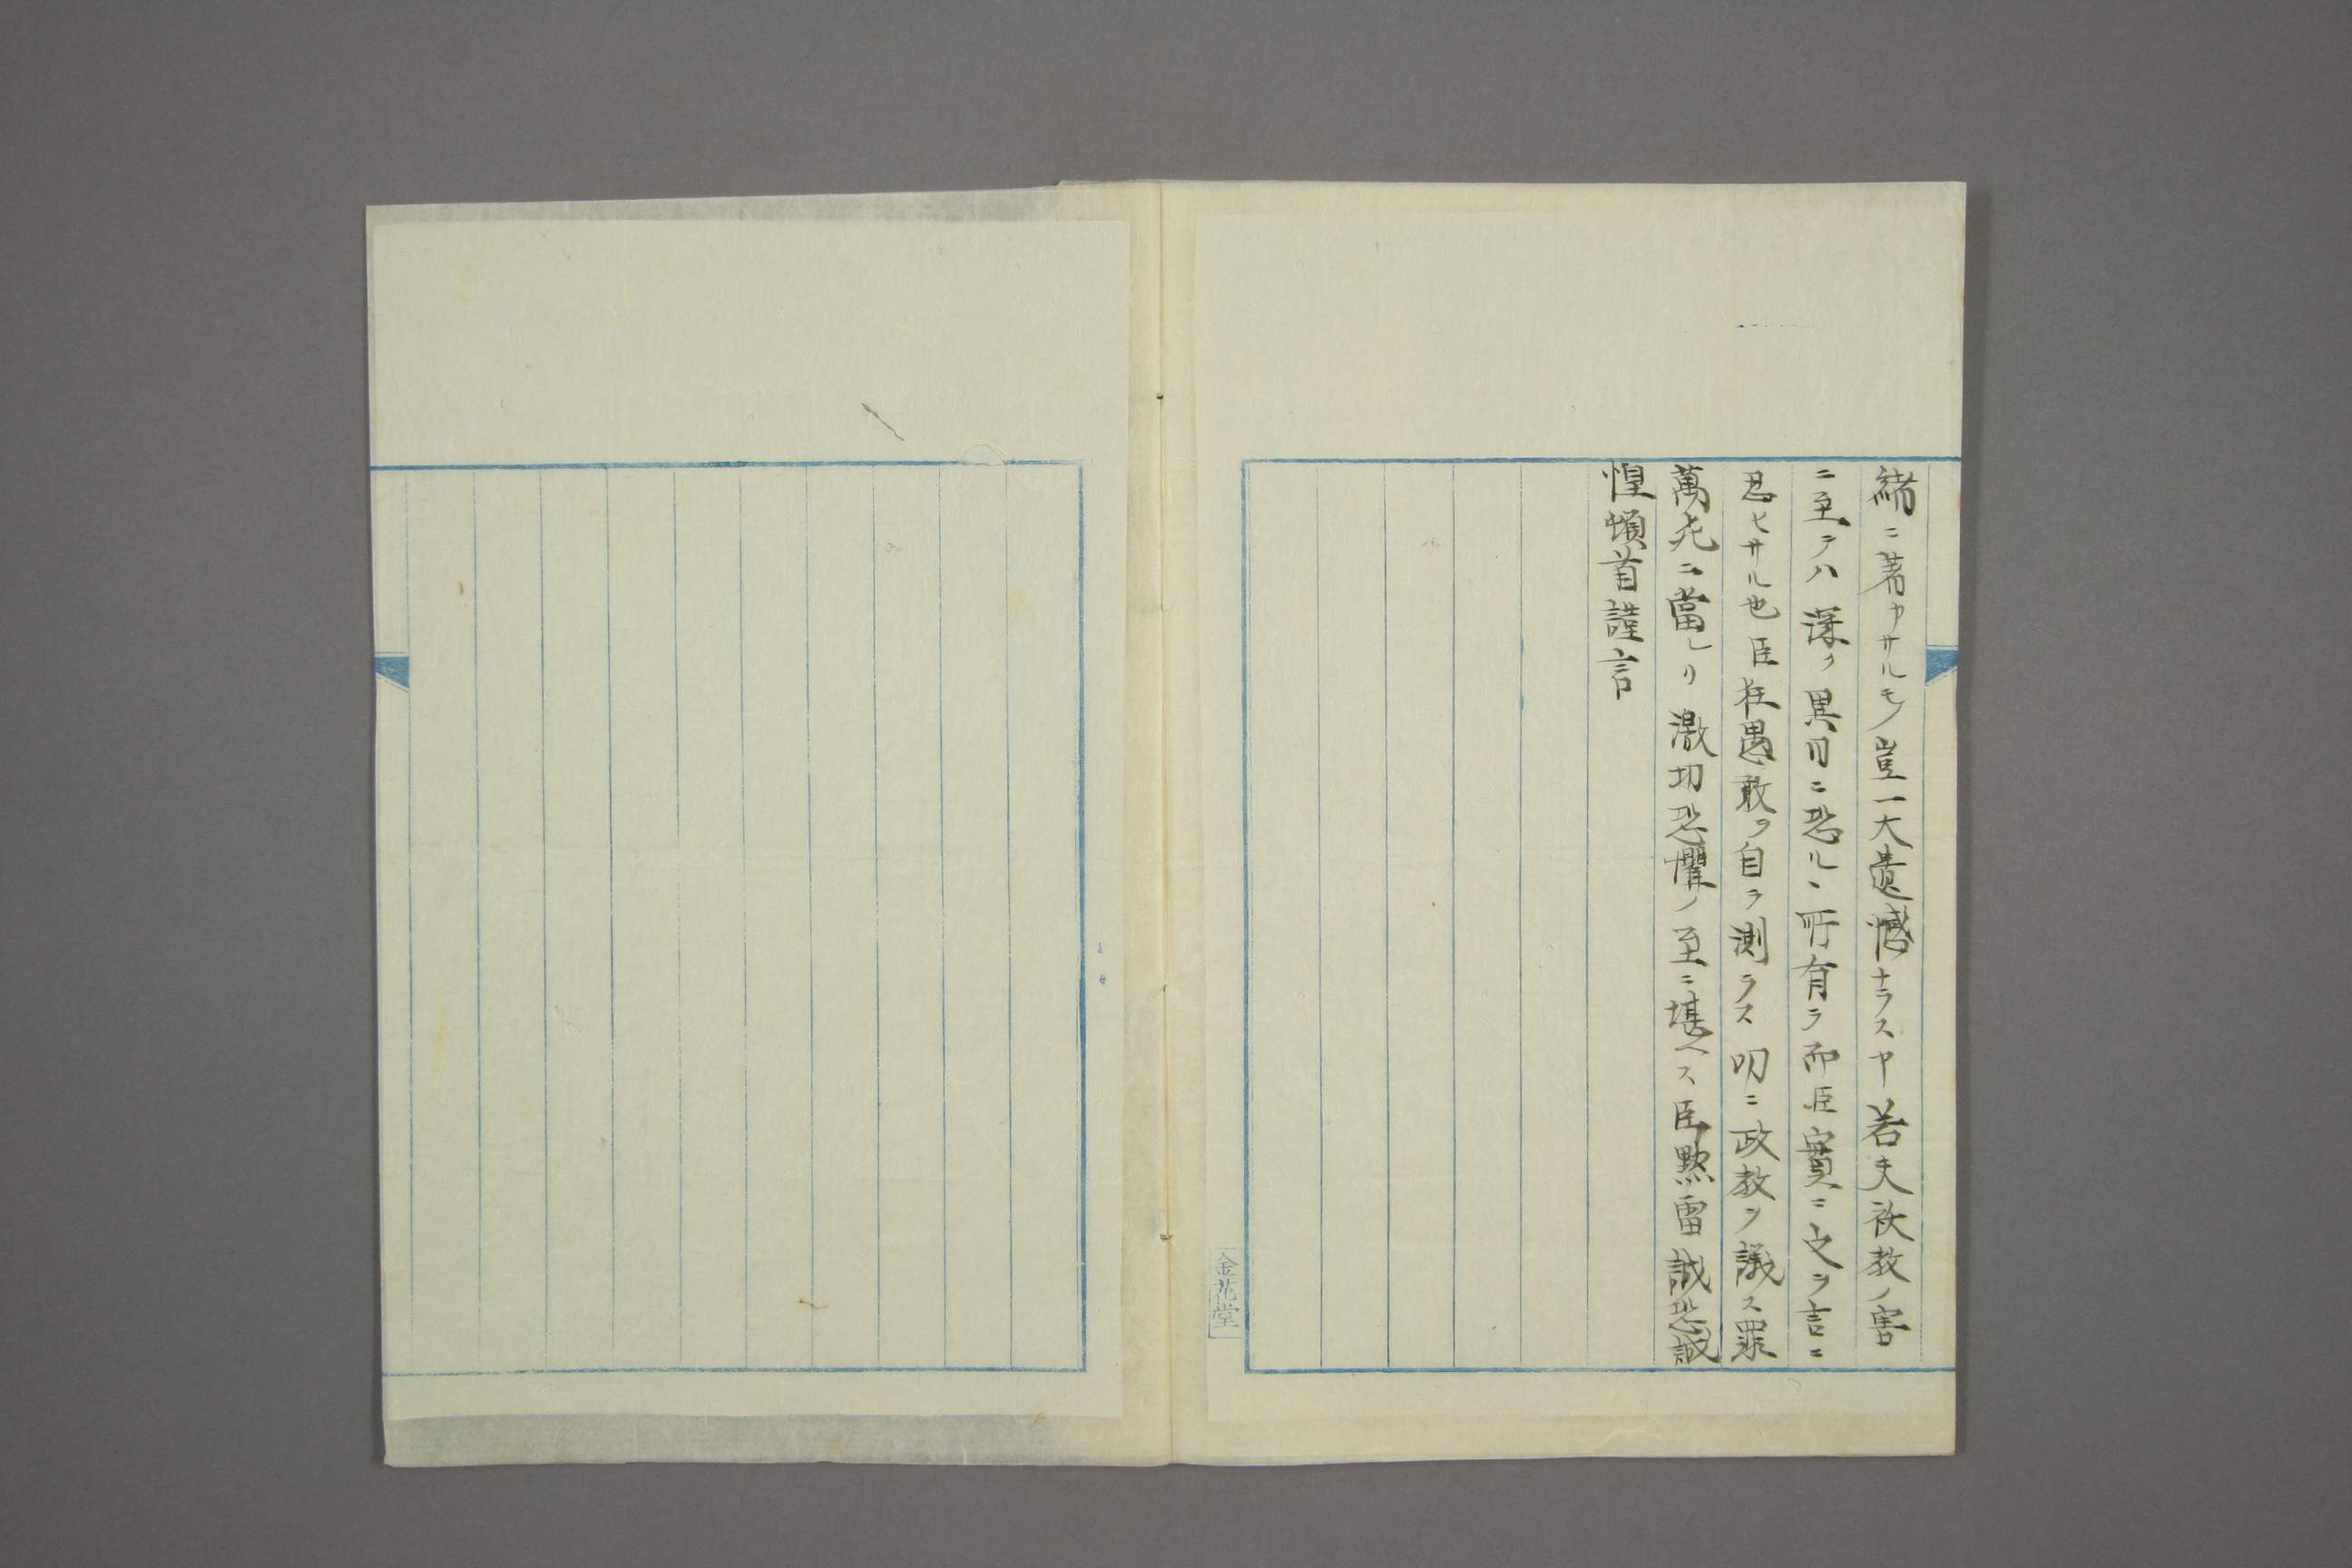 緒ニ著ヤサルモノ豈一大遺憾ナラスヤ若夫祅教ノ害
ニ至テハ深ク異日ニ恐ルヽ所有ラ而臣實ニ之ヲ言ニ
忍ヒサル也臣狂愚敢ヲ自ラ測ラス叨ニ政教ヲ議ス罪
萬死ニ當レリ激切恐懼ノ至ニ堪ヘス臣黙雷誠恐誠
惶頓首謹言
金花堂